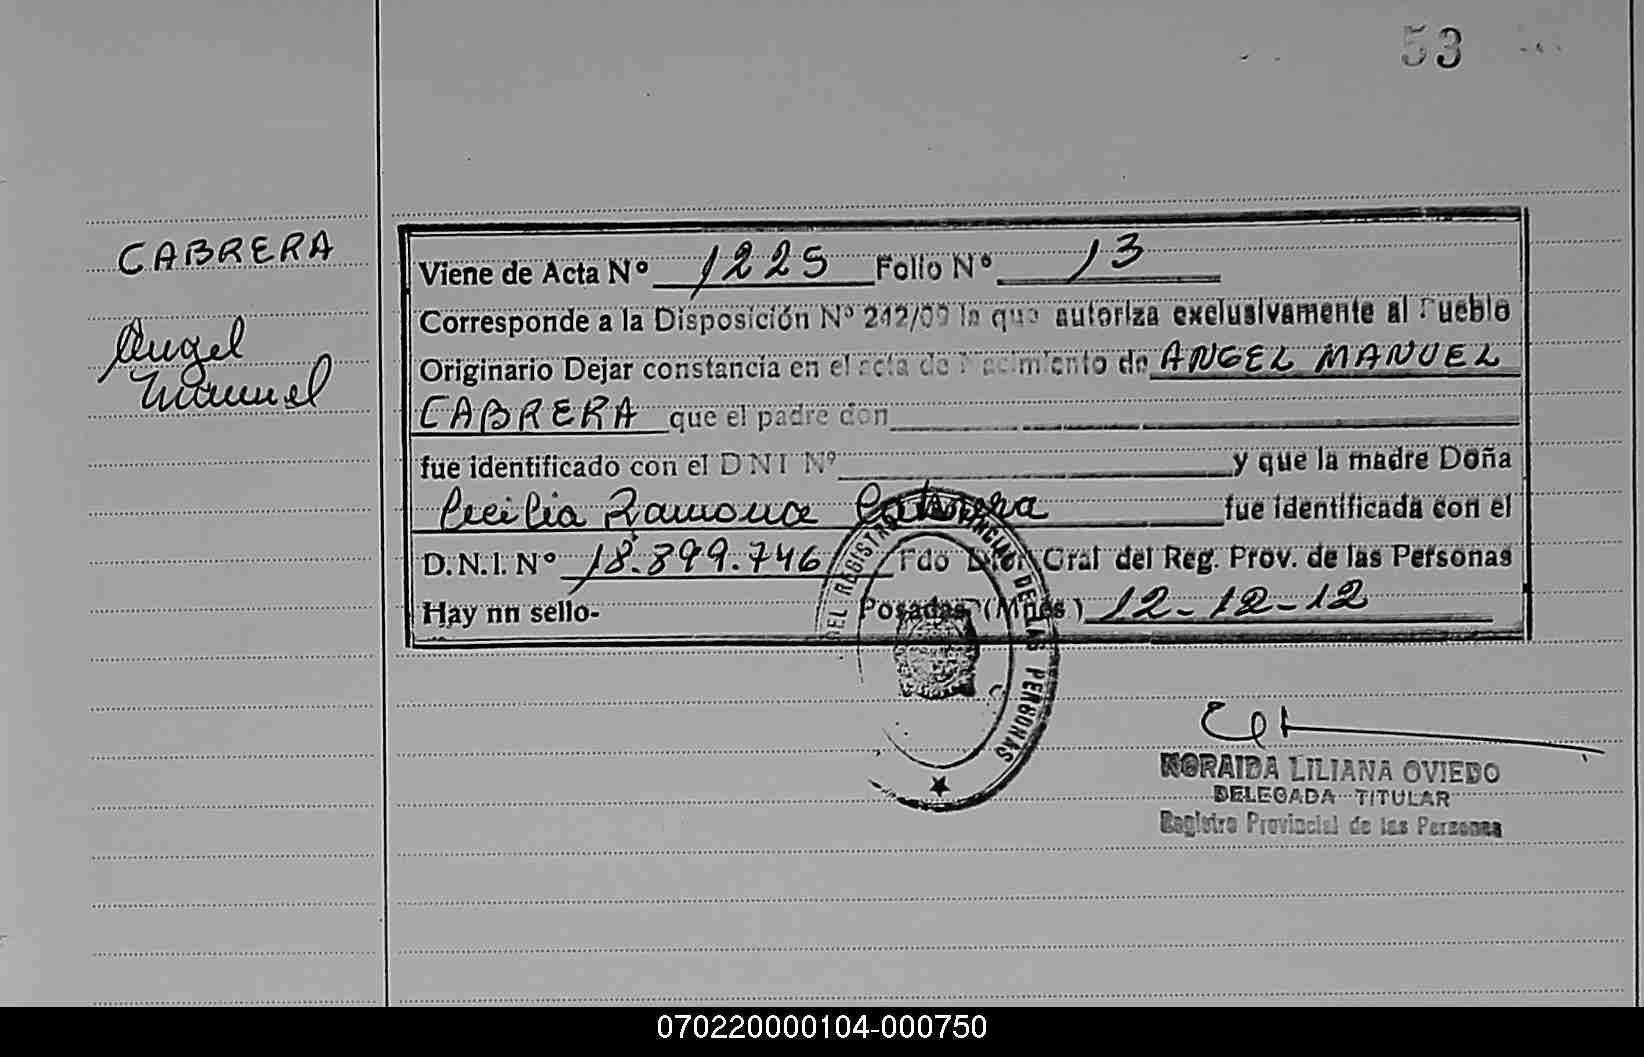 53
CABRERA
Angel
Manuel
Viene de Acta Nº 1225 Folio Nº 13
Corresponde a la Disposición Nº 242/09 la que autoriza exclusivamente al Pueblo
Originario Dejar constancia en el acta de Nacimiento de ANGEL MANUEL
CABRERA que el padre don
fue identificado con el DNI Nº y que la madre Doña
Cecilia Ramona Cabrera fue identificada con el
D.N.I. Nº 18.899.746 Fdo Gral del Reg. Prov. de las Personas
Hay nn sello- Posadas (Mnes) 12-12-12
DEL REGISTRO PROVINCIAL DE LAS PERSONAS
NORAIDA LILIANA OVIEDO
DELEGADA TITULAR
Registro Provincial de las Personas
070220000104-000750